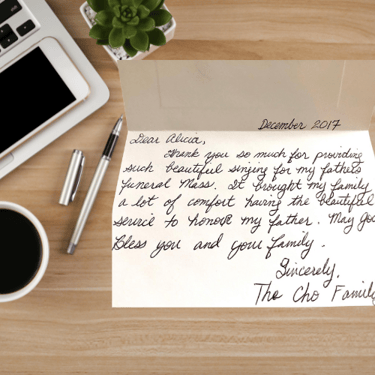 December 2017
Dear Alicia,
Thank you so much for providing
such beautiful singing for my father's
funeral Mass. It brought my family
a lot of comfort having the beautiful
service to honor my father. May God
bless you and your family.
Sincerely,
The Cho Family